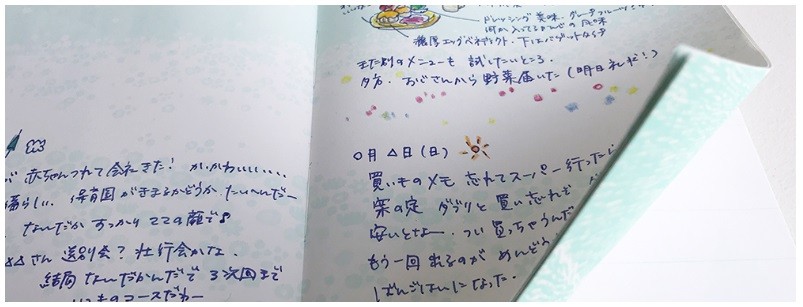 ドレッシング 美味。グレープフルーツ
何か入ってるかんじの風味
濃厚エッグベネディクト。下はバゲット
また別のメニューも 試したいところ。
夕方、おじさんから 野菜届いた（明日礼だ!）
〇月 △日（日）
買いものメモ 忘れてスーパー行ったら
案の定 ダブりと 買い忘れで
安いとなー。つい 買っちゃうんだ
もう一回 出るのが めんどう
ばんごはんになった。
赤ちゃんつれて会社きた! かかわいい....
保育園がきまるかどうか たいへんだー
なんだか すっかり ママの顔で
さん 送別会? 壮行会かな。
結局 なんだかんだで 3次回まで
いつものコースだわー